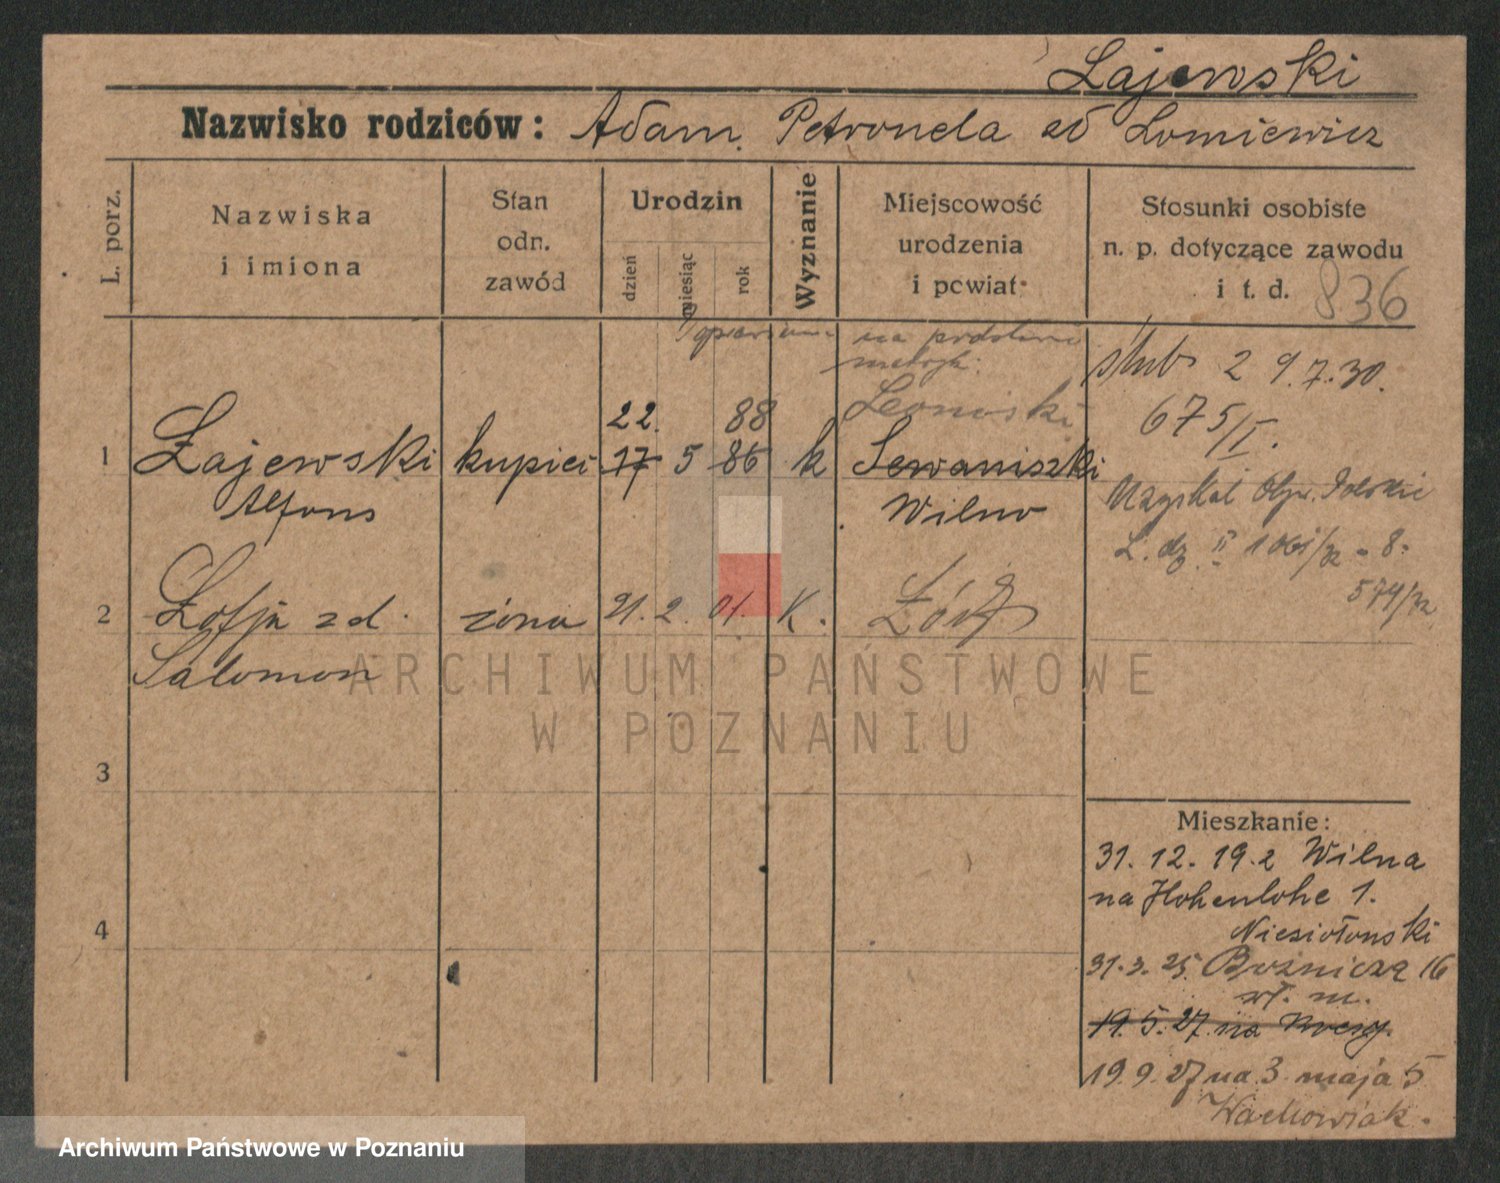 Łajewski
Nazwisko rodziców: Adam. Petronela zd Lomiewicz
L. porz.
Nazwiska
i imiona
Stan
odn.
zawód
Urodzin
dzień
miesiąc
rok
Wyznanie
Miejscowość
urodzenia
i powiat
Stosunki osobiste
n. p. dotyczące zawodu
i t. d.
836
na podstawie
metryk.
ślub 29.7.30.
675/I.
22. 88
1 Łajewski kupiec 17 5 86 k Sewaniszki
Alfons Wilno
Magistrat
L. dz. II 1061/32 - 8.
579/32
2 Zofja zd. żona 21. 2. 01. K. Łódź
Salomon
ARCHIWUM PAŃSTWOWE
W POZNANIU
3
4
Mieszkanie:
31. 12. 19.2 Wilna
na Hohenlohe 1.
Niesiołowski
31. 3. 25 Bożnicza 16
wł. m.
19. 5. 27 na
19. 9. 27 na 3 maja 5
Wachowiak.
Archiwum Państwowe w Poznaniu